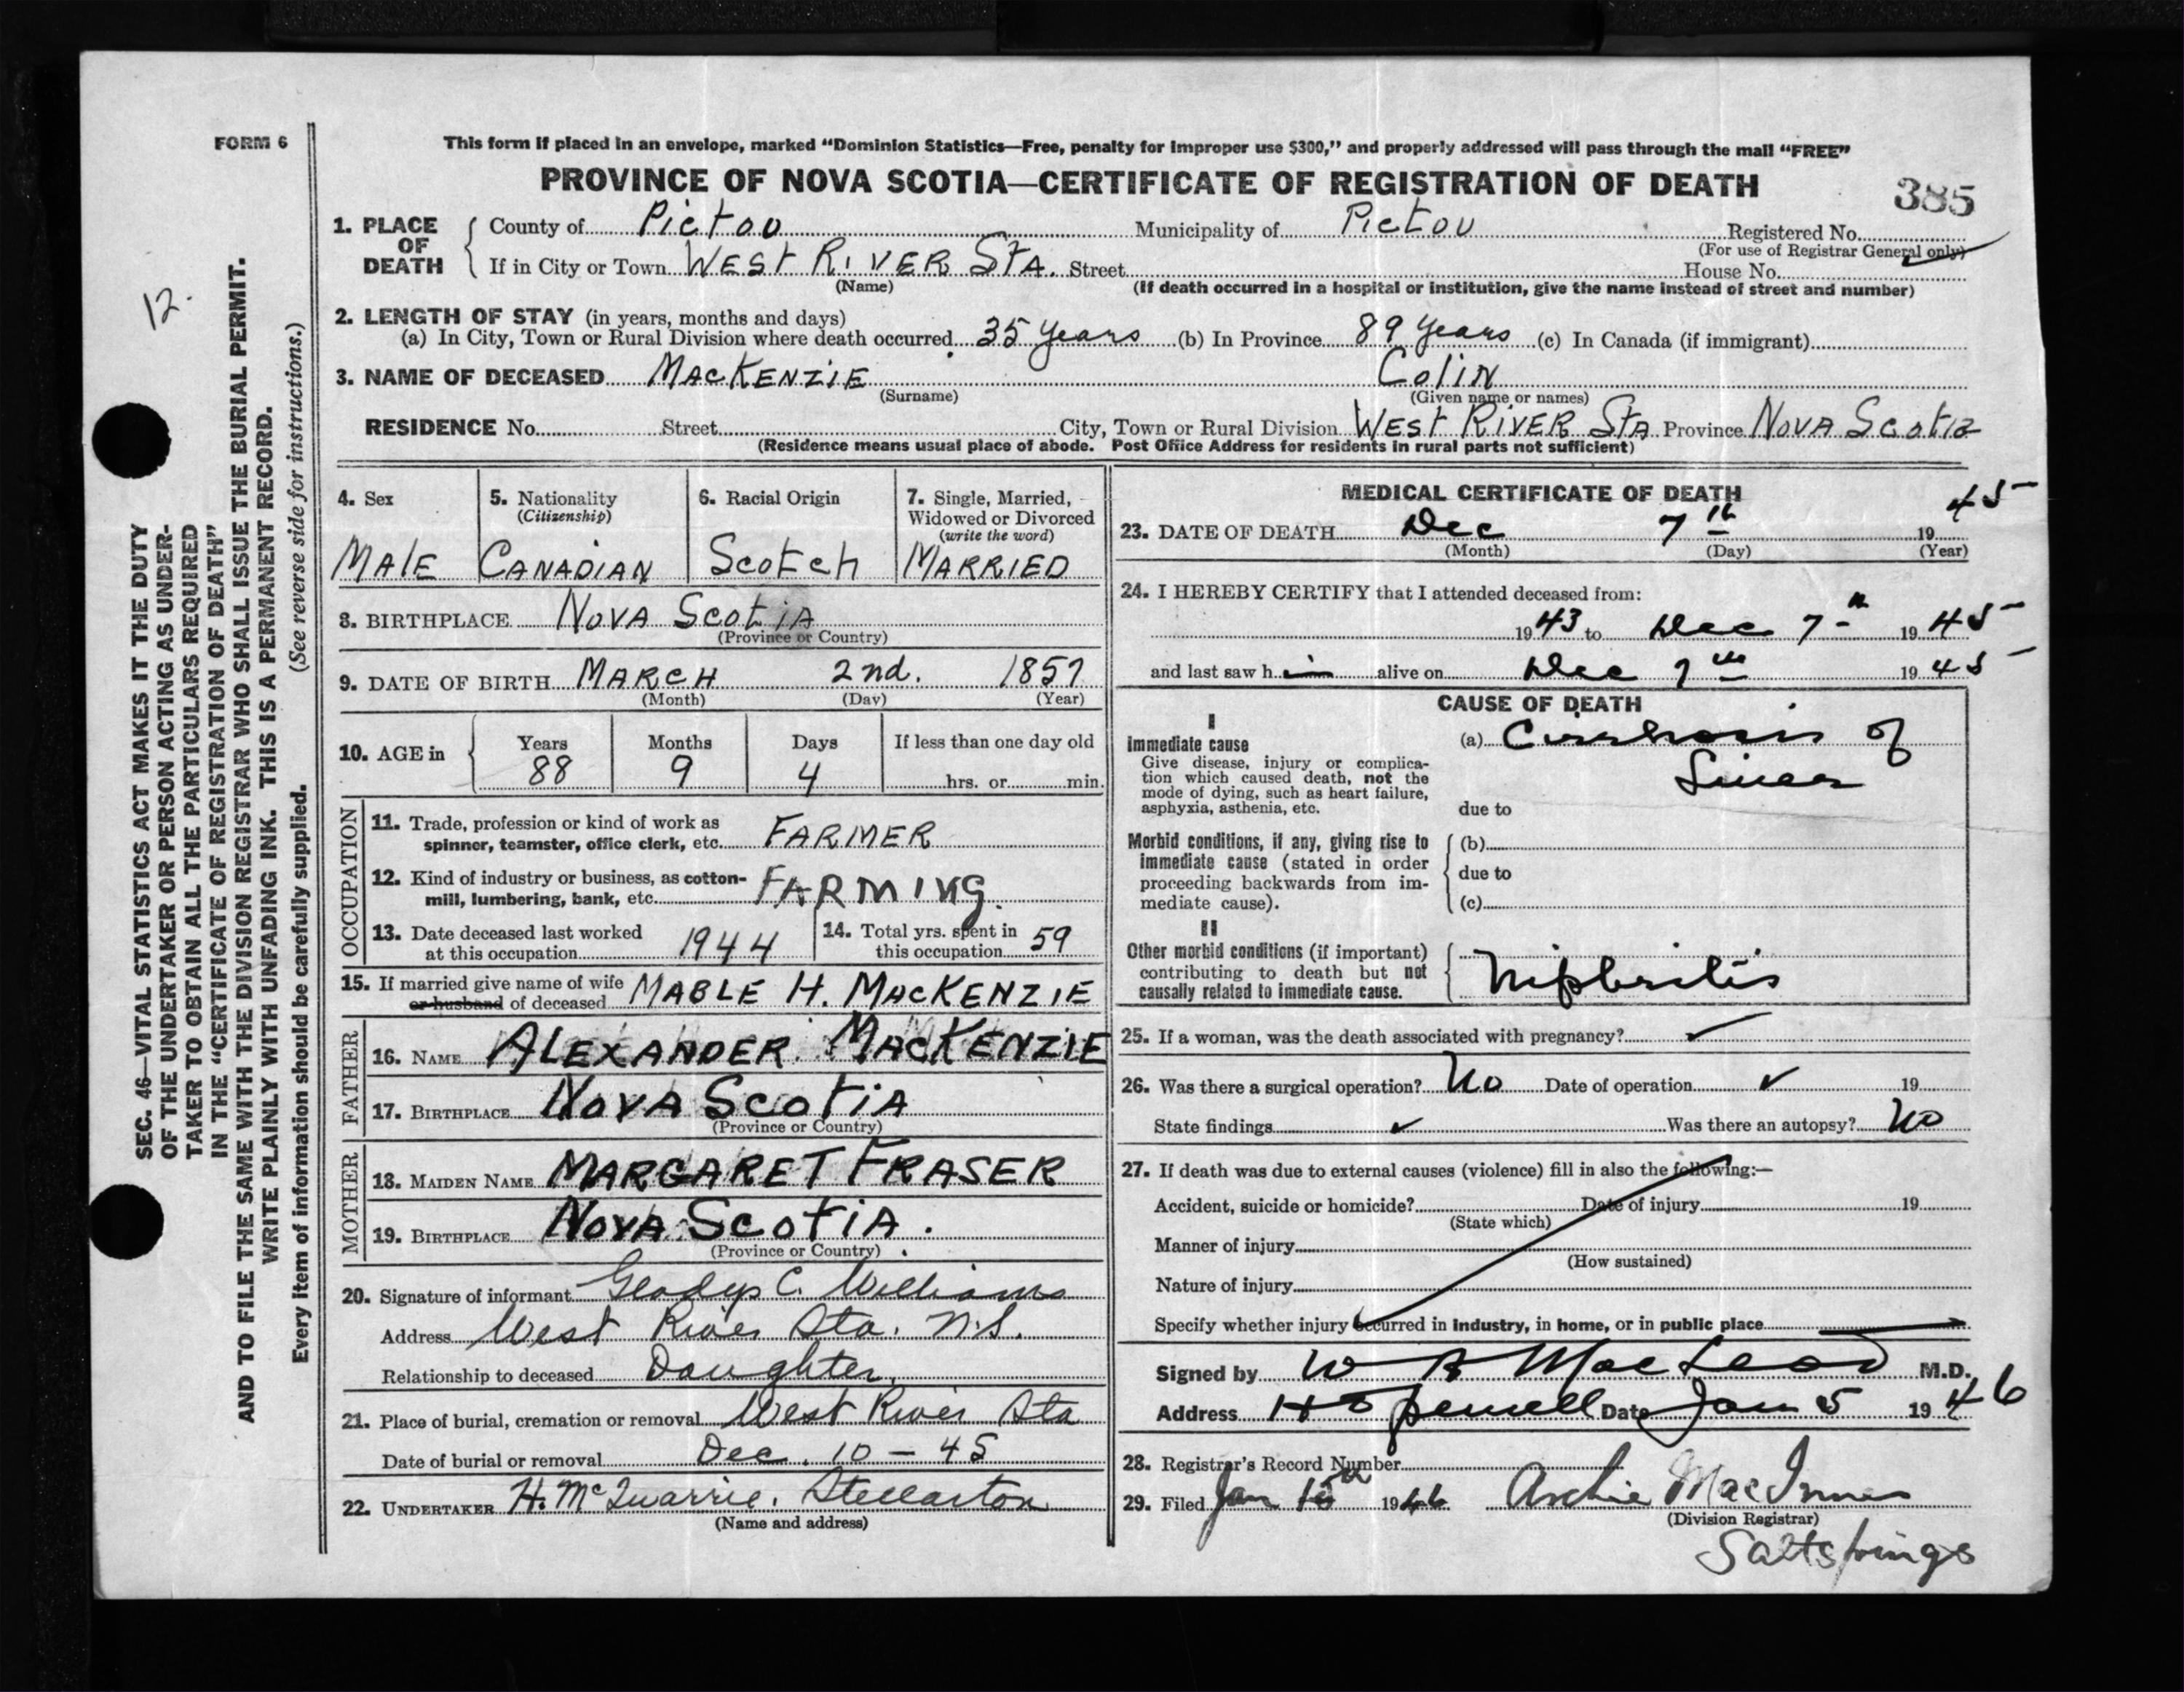 FORM 6
This form if placed in an envelope, marked "Dominion Statistics—Free, penalty for improper use $300," and properly addressed will pass through the mail "FREE"
PROVINCE OF NOVA SCOTIA—CERTIFICATE OF REGISTRATION OF DEATH
385
12.
SEC. 46—VITAL STATISTICS ACT MAKES IT THE DUTY
OF THE UNDERTAKER OR PERSON ACTING AS UNDER-
TAKER TO OBTAIN ALL THE PARTICULARS REQUIRED
IN THE "CERTIFICATE OF REGISTRATION OF DEATH"
AND TO FILE THE SAME WITH THE DIVISION REGISTRAR WHO SHALL ISSUE THE BURIAL PERMIT.
WRITE PLAINLY WITH UNFADING INK. THIS IS A PERMANENT RECORD.
Every item of information should be carefully supplied. (See reverse side for instructions.)
1. PLACE OF DEATH
County of Pictou Municipality of Pictou Registered No.
(For use of Registrar General only)
If in City or Town WEST RIVER STA. Street House No.
(Name) (If death occurred in a hospital or institution, give the name instead of street and number)
2. LENGTH OF STAY (in years, months and days)
(a) In City, Town or Rural Division where death occurred 35 years (b) In Province 89 years (c) In Canada (if immigrant)
3. NAME OF DECEASED MACKENZIE Colin
(Surname) (Given name or names)
RESIDENCE No. Street City, Town or Rural Division WEST RIVER STA Province NOVA Scotia
(Residence means usual place of abode. Post Office Address for residents in rural parts not sufficient)
4. Sex
MALE
5. Nationality
(Citizenship)
CANADIAN
6. Racial Origin
Scotch
7. Single, Married,
Widowed or Divorced
(write the word)
MARRIED
8. BIRTHPLACE NOVA SCOTIA
(Province or Country)
9. DATE OF BIRTH MARCH 2nd. 1857
(Month) (Day) (Year)
10. AGE in
Years Months Days If less than one day old
88 9 4 hrs. or min.
OCCUPATION
11. Trade, profession or kind of work as
spinner, teamster, office clerk, etc. FARMER
12. Kind of industry or business, as cotton-
mill, lumbering, bank, etc. FARMING.
13. Date deceased last worked
at this occupation 1944
14. Total yrs. spent in
this occupation 59
15. If married give name of wife
or husband of deceased MABLE H. MACKENZIE
FATHER
16. NAME ALEXANDER MACKENZIE
17. BIRTHPLACE NOVA SCOTIA
(Province or Country)
MOTHER
18. MAIDEN NAME MARGARET FRASER
19. BIRTHPLACE NOVA SCOTIA.
(Province or Country)
20. Signature of informant Gladys C. Williams
Address West River Sta. N.S.
Relationship to deceased Daughter.
21. Place of burial, cremation or removal West River Sta
Date of burial or removal Dec. 10 - 45
22. UNDERTAKER H. McQuarrie, Stellarton
(Name and address)
MEDICAL CERTIFICATE OF DEATH
23. DATE OF DEATH Dec 7th 1945
(Month) (Day) (Year)
24. I HEREBY CERTIFY that I attended deceased from:
1943 to Dec 7th 1945
and last saw him alive on Dec 7th 1945
CAUSE OF DEATH
I
Immediate cause
Give disease, injury or complica-
tion which caused death, not the
mode of dying, such as heart failure,
asphyxia, asthenia, etc.
(a) Cirrhosis of
Liver
due to
Morbid conditions, if any, giving rise to
immediate cause (stated in order
proceeding backwards from im-
mediate cause).
(b)
due to
(c)
II
Other morbid conditions (if important)
contributing to death but not
causally related to immediate cause.
Niphritis
25. If a woman, was the death associated with pregnancy? ✓
26. Was there a surgical operation? No Date of operation ✓ 19
State findings ✓ Was there an autopsy? No
27. If death was due to external causes (violence) fill in also the following:—
Accident, suicide or homicide? Date of injury 19
(State which)
Manner of injury
(How sustained)
Nature of injury
Specify whether injury occurred in industry, in home, or in public place
Signed by W A MacLeod M.D.
Address Hopewell Date Jan 5 1946
28. Registrar's Record Number
29. Filed Jan 15th 1946 Archie MacInnes
(Division Registrar)
Saltsprings